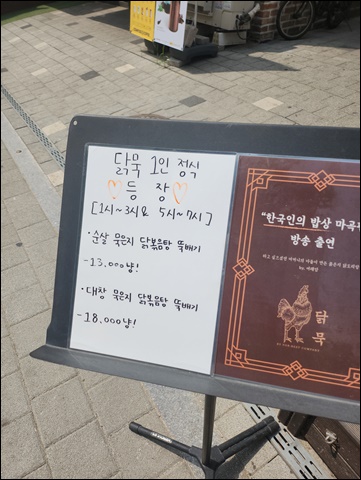 닭묵 1인 정식
♡등 장♡
[1시~3시& 5시~7시]
·순살 묵은지 닭볶음탕 뚝배기
-13,000냥!
·대창 묵은지 닭볶음탕 뚝배기
-18,000냥!
"한국인의 밥상 마곡
방송 출연
닭
묵